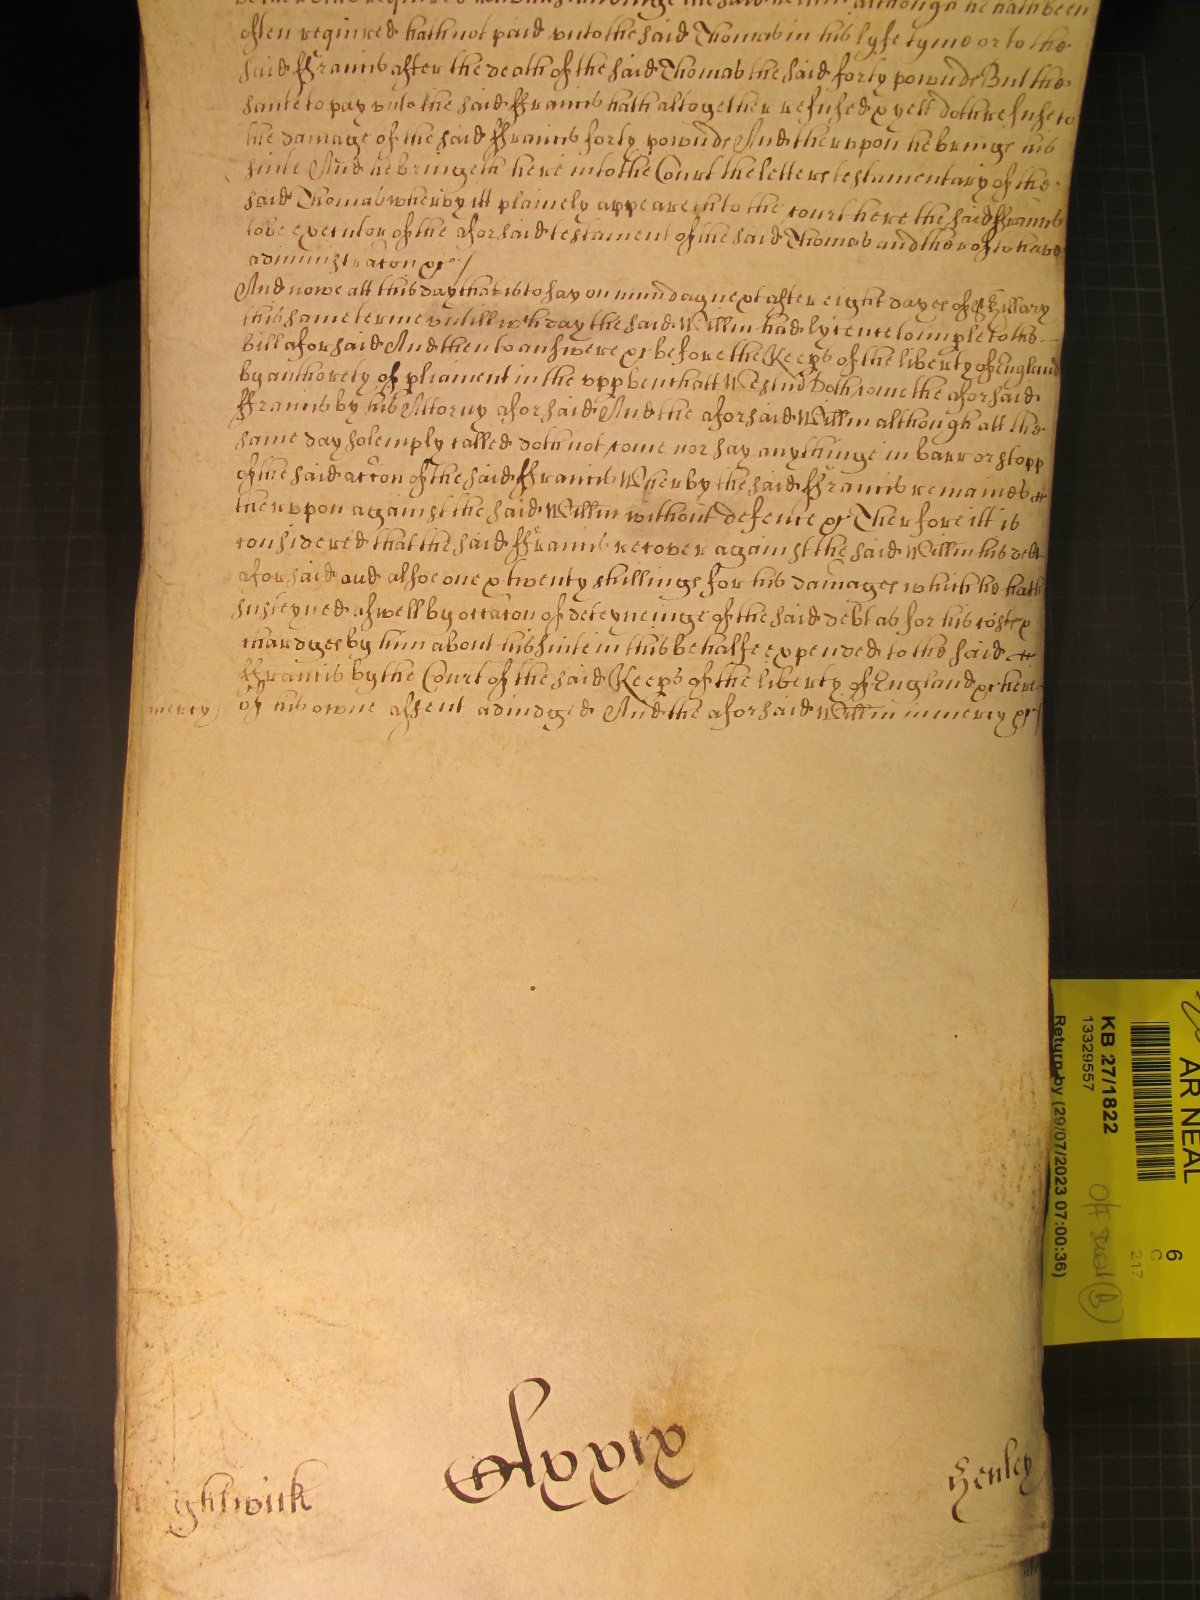 often required hath not paid unto the said Thomas in his lyfe tyme or to the
said ffrancis after the death of the said Thomas the said forty pownds But the
same to pay unto the said ffrancis hath altogether refused & yett doth refuse to
the damage of the said ffrancis forty pownds And therupon he brings his
suite And he bringeth here into the Court the letters testamentary of the
said Thomas wherby itt plainely appeareth to the court here the said ffrancis
to be executor of the aforsaid testament of the said Thomas and therof to have
administracon &c /
And nowe att this day that is to say on munday next after eight dayes of St Hillary
this same terme untill wch day the said Willm had lycence to imple to the
bill aforsaid And then to answere &c before the Keeps of the liberty of England
by authorety of pliament in the upp bench att Westm doth come the aforsaid
ffrancis by his Attorny aforsaid And the aforsaid Willm although att the
same day solemply called doth not come nor say anythinge in barr or stopp
of the said accon of the said ffrancis Wherby the said ffrancis remaines
therupon against the said Willm without defence &c Therfore itt is
considered that the said ffrancis recover against the said Willm his debt
aforsaid and alsoe one & twenty shillings for his damages which he hath
susteyned aswell by occacon of deteyneinge of the said debt as for his costs &
chardges by him about his suite in this behalfe expended to the said
ffrancis by the Court of the said Keeps of the liberty of England &c here
mercy of his owne assent adiudged And the aforsaid Willm in mercy &c /
Clxxix
Henley
KB 27/1822
13329557
Return by (29/07/2023 07:00:36)
AR NEAL
6
C
217